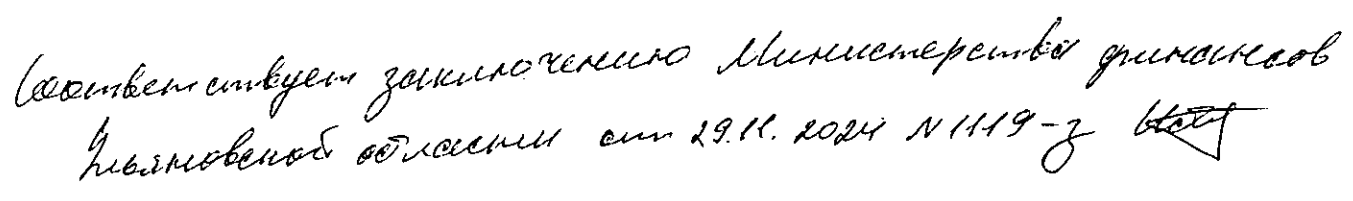 Соответствует заключению Министерства финансов
Ульяновской области от 29.11.2024 N 1119-з